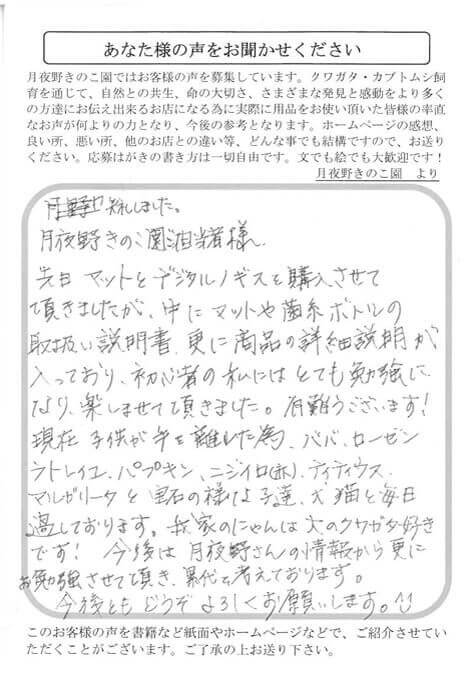 あなた様の声をお聞かせください
月夜野きのこ園ではお客様の声を募集しています。クワガタ・カブトムシ飼
育を通じて、自然との共生、命の大切さ、さまざまな発見と感動をより多く
の方達にお伝え出来るお店になる為に実際に用品をお使い頂いた皆様の率直
なお声が何よりの力となり、今後の参考となります。ホームページの感想、
良い所、悪い所、他のお店との違い等、どんな事でも結構ですので、お送り
ください。応募はがきの書き方は一切自由です。文でも絵でも大歓迎です！
月夜野きのこ園 より
失礼しました。
月夜野きのこ園ご担当者様
先日 マットとデジタルノギスを購入させて
頂きましたが、中にマットや菌糸ボトルの
取扱い説明書、更に商品の詳細説明が
入っており、初心者の私にはとても勉強に
なり、楽しませて頂きました。有難うございます！
現在 子供が手を離した為、ババ、ローゼン
ラトレイユ、パプキン、ニジイロ(赤)、ティティウス、
マルゼリータと宝石の様な子達、犬猫と毎日
過しております。我家のにゃんは大のクワガタ好き
です！ 今後は月夜野さんの情報から更に
お勉強させて頂き、累代を考えております。
今後ともどうぞよろしくお願いします。
このお客様の声を書籍など紙面やホームページなどで、ご紹介させてい
ただくことがございます。ご了承の上お送り下さい。